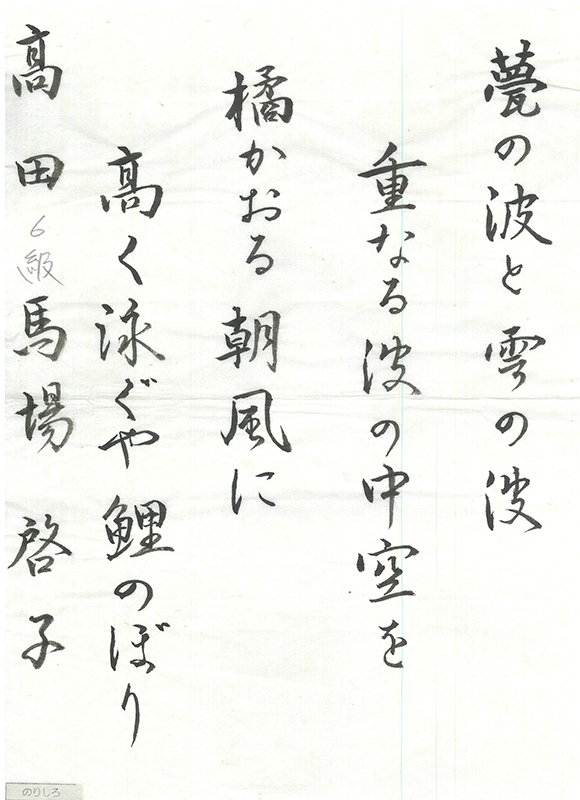 甍の波と雲の波
重なる波の中空を
橘かおる朝風に
高く泳ぐや鯉のぼり
高田 6級 馬場 啓子
のりしろ